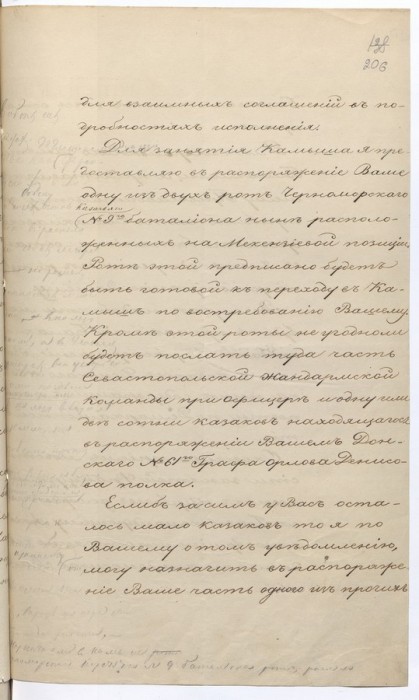 206
для взаимныхъ соглашенiй въ по-
дробностяхъ исполненiя.
Для занятiя Камыша я пре-
доставляю въ распоряженiе Ваше
одну изъ двухъ ротъ Черноморскаго
№ 9го баталiона нынѣ располо-
женныхъ на Мекензiевой позицiи
Ротѣ этой предписано будетъ
быть готовой къ переходу въ Ка-
мышъ по востребованiю Вашему.
Кромѣ этой роты не угодноли
будетъ послать туда часть
Севастопольской Жандармской
команды при офицерѣ и одну или
двѣ сотни Казаковъ находящагося
въ распоряженiи Вашемъ Дон-
скаго № 61го Графа Орлова Денисо-
ва полка.
Еслибъ за симъ у Васъ оста-
лось мало Казаковъ то я по
Вашему о томъ увѣдомленiю,
могу назначить въ распоряже-
нiе Ваше часть одного изъ прочихъ